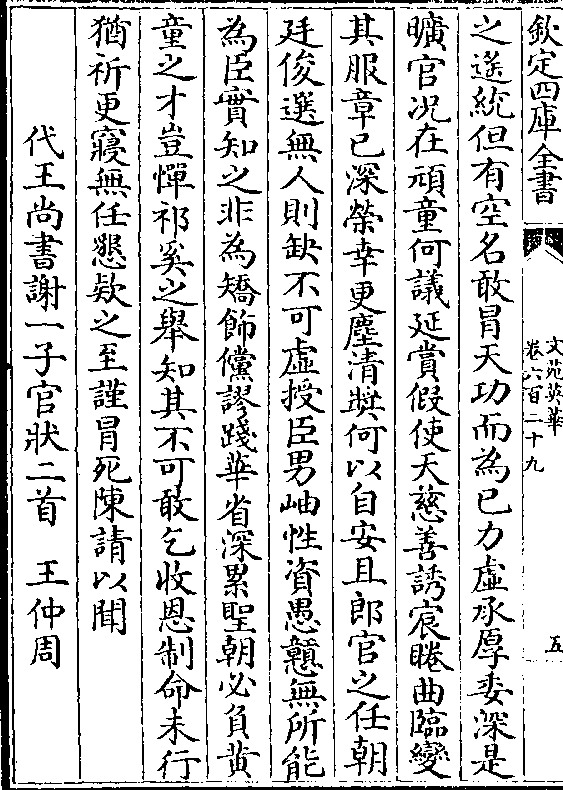 欽定四庫全書
文苑英華
卷六百二十九
五
之遥統但有空名敢冒天功而為已力虚承厚委深是
曠官况在頑童何議延賞假使天慈善誘宸睠曲臨變
其服章已深榮幸更塵清奬何以自安且郎官之任朝
廷俊選無人則缺不可虚授臣男岫性資愚戆無所能
為臣實知之非為矯飾儻謬踐華省深累聖朝必負黄
童之才豈憚祁奚之舉知其不可敢乞收恩制命未行
猶祈更寢無任懇欵之至謹冒死陳請以聞
代王尚書謝一子官狀二首　王仲周